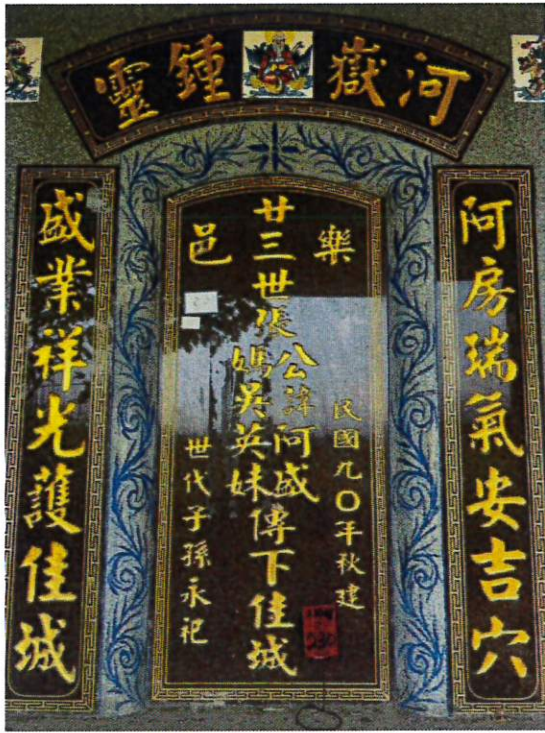 河嶽鍾靈
阿房瑞氣安吉穴
樂邑
民國九〇年秋建
廿三世張公諱阿盛
媽吳英妹傳下佳城
世代子孫永祀
盛業祥光護佳城